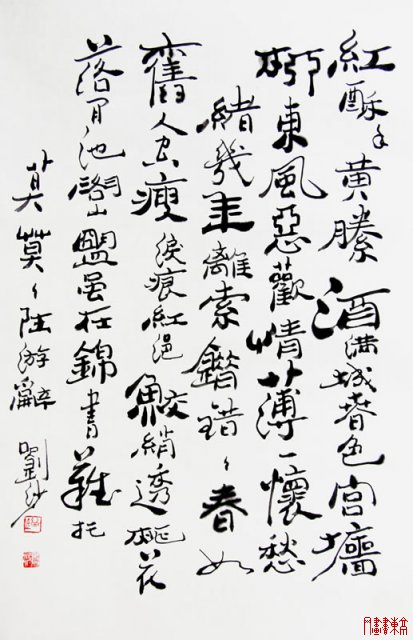 紅酥手黄縢酒滿城春色宮墻
柳東風惡歡情薄一懷愁
緒幾年離索錯錯々春如
舊人空瘦淚痕紅浥鮫綃透桃花
落閒池閣山盟雖在錦書難托
莫莫々陸游辭
劉